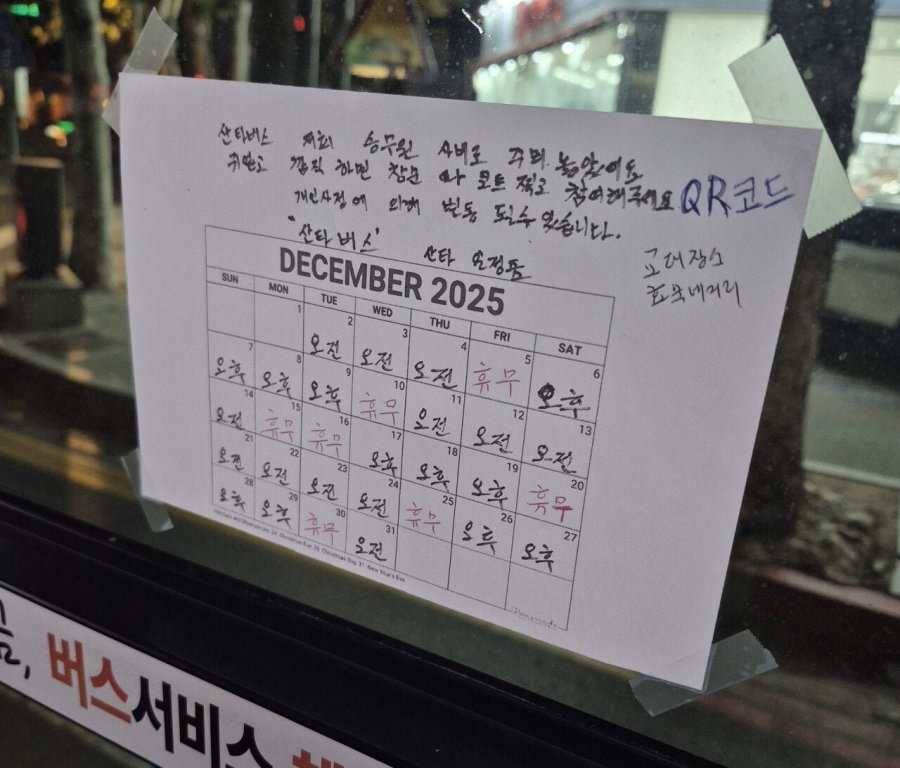 산타버스 저희 승무원 사비로 놓았어요
깜직 하면 창문 코트 찍고 참여해주세요 QR코드
개인사정에 의해 변동 될수 있습니다.
'산타버스' 산타
교대장소
네거리
DECEMBER 2025
SUN MON TUE WED THU FRI SAT
1 2 3 4 5 6
오전 오전 오전 휴무 오후
7 8 9 10 11 12 13
오후 오후 오후 휴무 오전 오전 오전
14 15 16 17 18 19 20
오전 휴무 휴무 오후 오후 오후 휴무
21 22 23 24 25 26 27
오전 오전 오전 오전 휴무 오후 오후
28 29 30 31
오후 오후 휴무 오전
Holidays and Observances: 24: Christmas Eve, 25: Christmas Day, 31: New Year's Eve
버스서비스